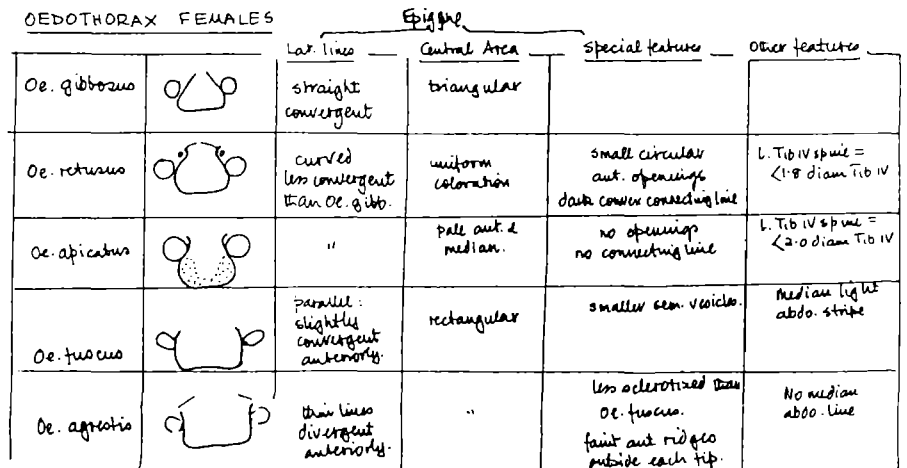 OEDOTHORAX FEMALES
Epigyne
Lat. lines Central Area Special features Other features
Oe. gibbosus
straight
convergent
triangular
Oe. retusus
curved
less convergent
than Oe. gibb.
uniform
coloration
small circular
ant. openings
dark convex connecting line
L. Tib IV spine =
<1.8 diam Tib IV
Oe. apicatus
"
pale ant. &
median.
no openings
no connecting line
L. Tib IV spine =
<2.0 diam Tib IV
Oe. fuscus
parallel:
slightly
convergent
anteriorly.
rectangular
smaller sem. vesicles.
Median light
abdo. stripe
Oe. agrestis
thin lines
divergent
anteriorly.
"
less sclerotized than
Oe. fuscus.
faint ant ridges
outside each tip.
No median
abdo. line